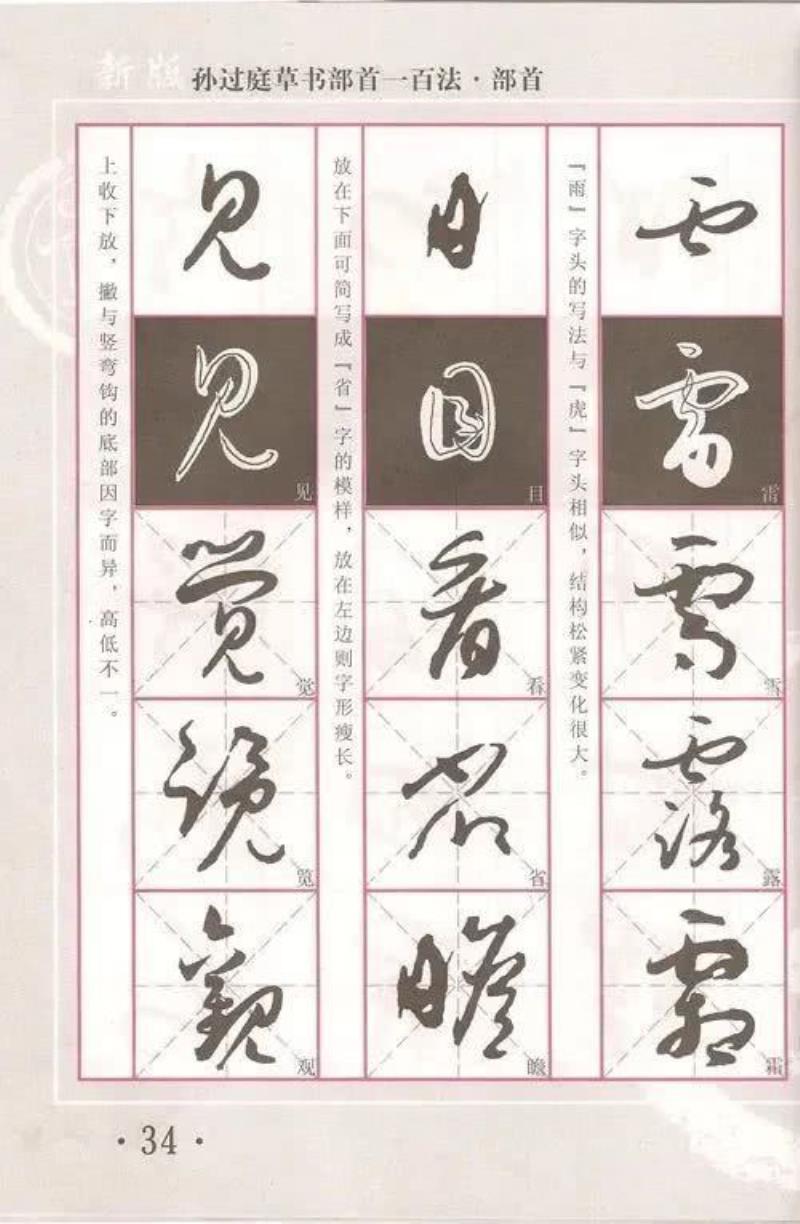 新版 孙过庭草书部首一百法·部首
『雨』字头的写法与『虎』字头相似，结构松紧变化很大。
雷
雪
露
霜
放在下面可简写成『省』字的模样，放在左边则字形瘦长。
目
看
省
瞻
上收下放，撇与竖弯钩的底部因字而异，高低不一。
见
觉
览
观
·34·